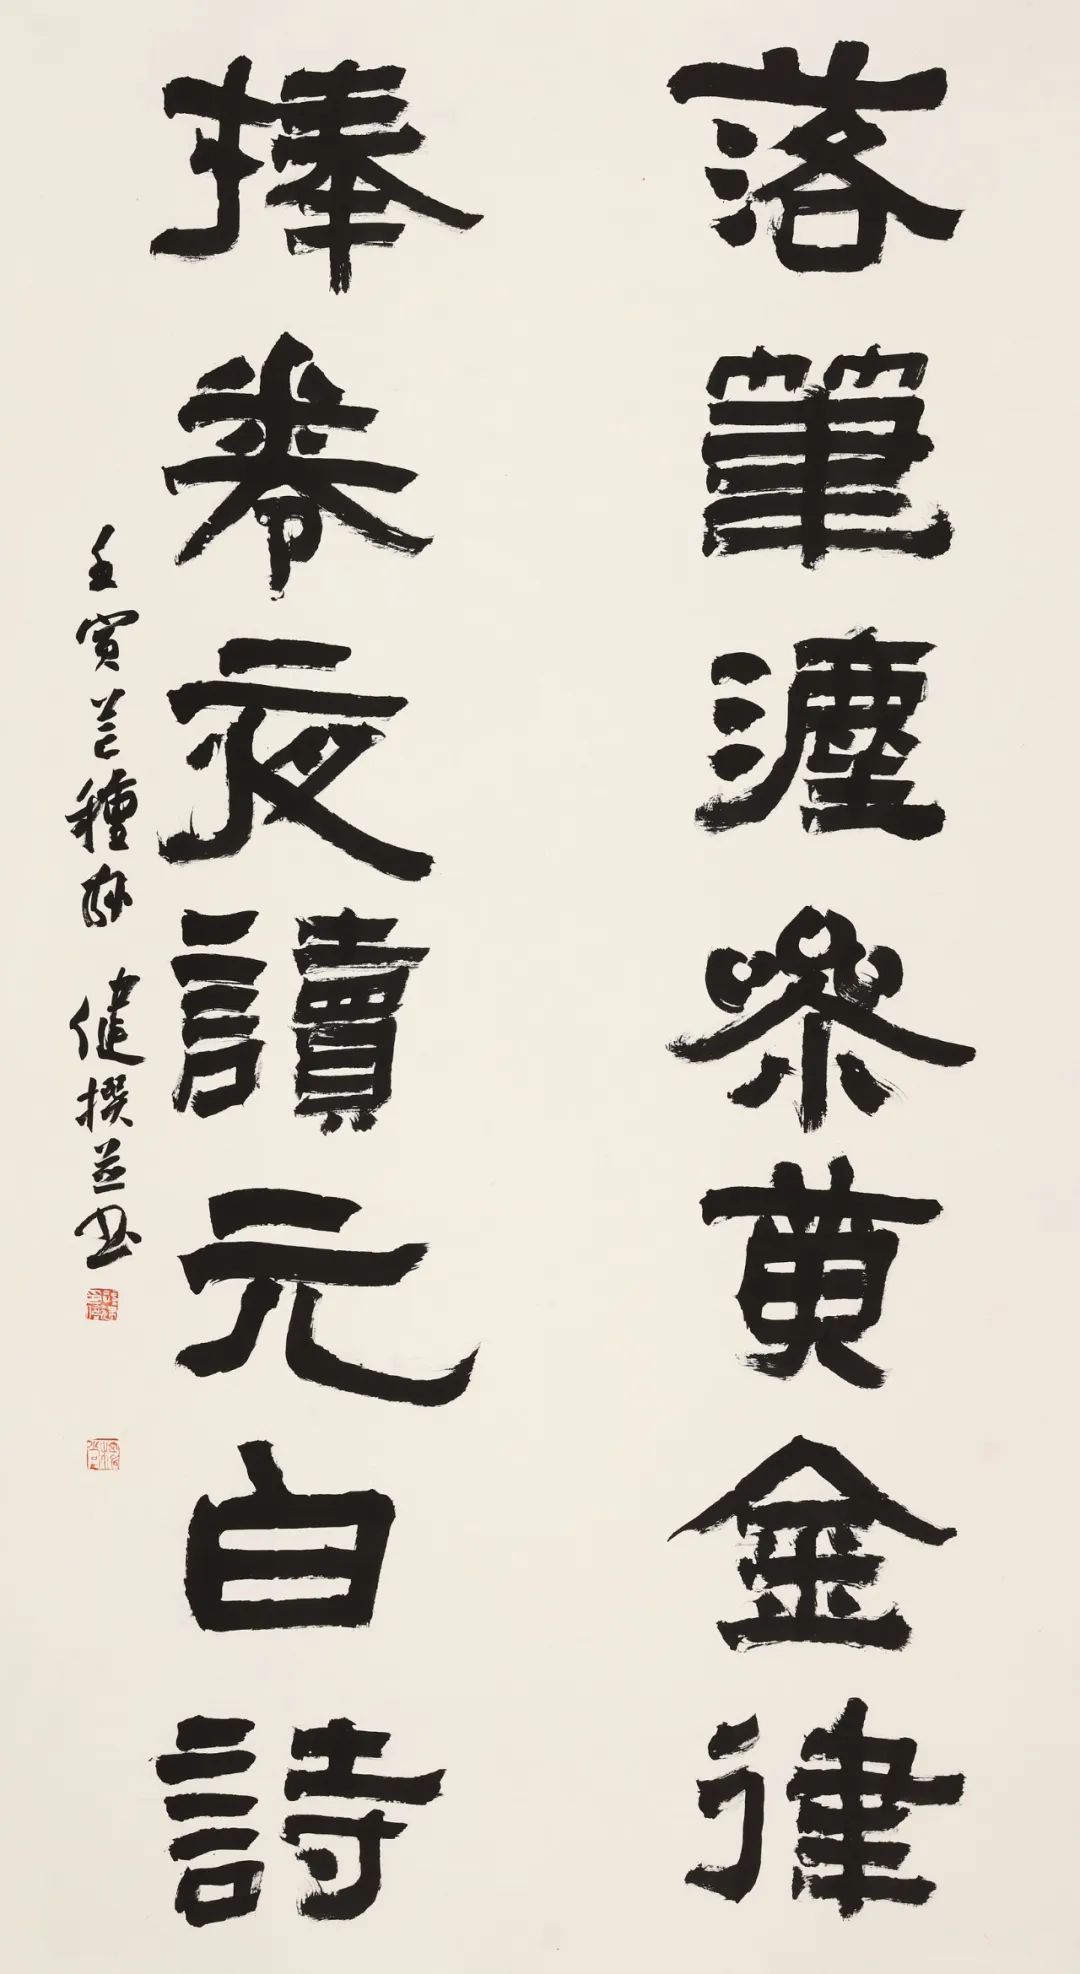 落筆灋參黃金律
捧卷夜讀元白詩
壬寅芒種 健撰並书